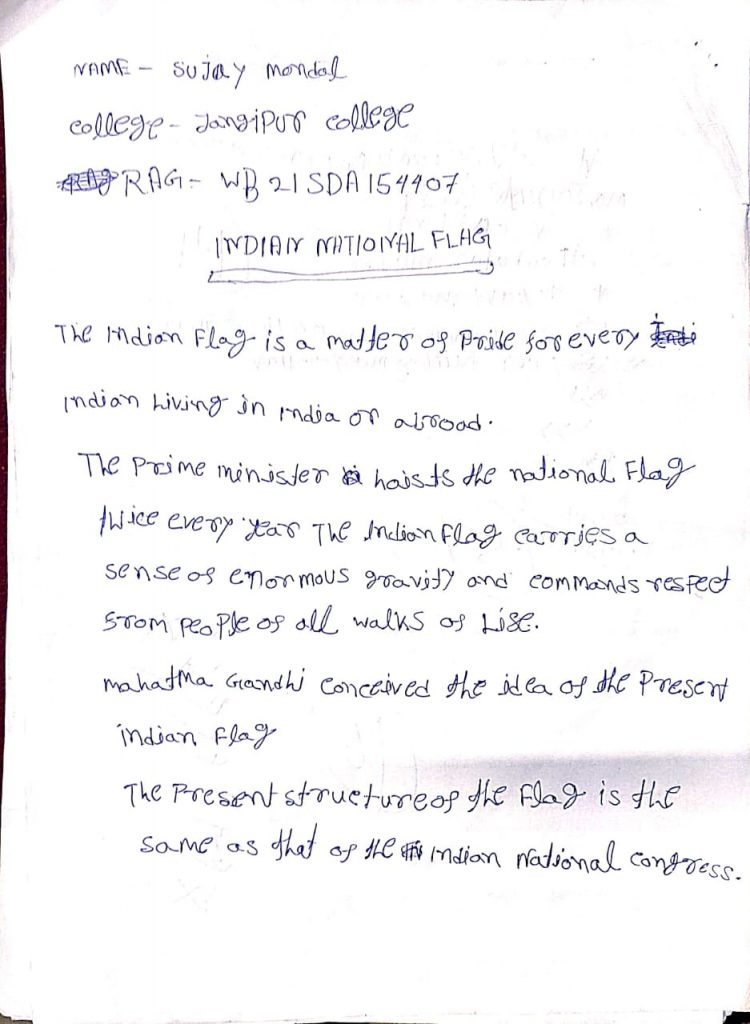 NAME - Sujay Mondal
college - Jangipur college
RAG - WB21SDA154407
INDIAN NATIONAL FLAG
The Indian Flag is a matter of Pride for every
indian Living in india or abroad.
The Prime minister hoists the national Flag
twice every year The Indian Flag carries a
sense of enormous gravity and commands respect
from people of all walks of Life.
mahatma Gandhi conceived the idea of the Present
indian Flag
The Present structure of the Flag is the
same as that of the indian National congress.